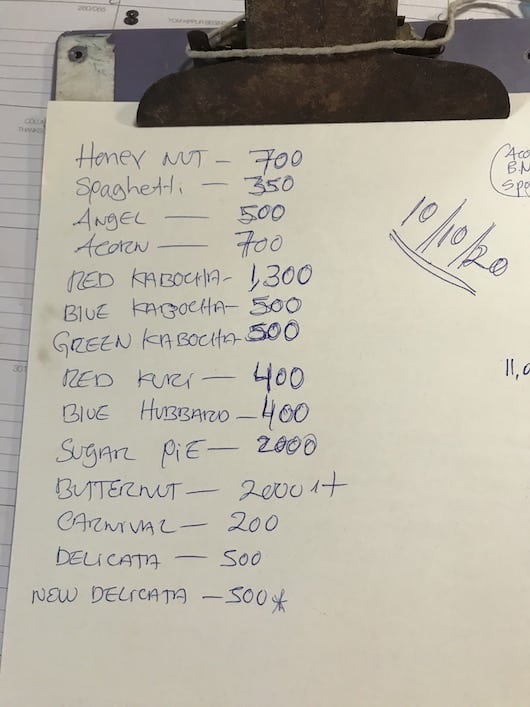 280/085
8
YOM KIPPUR BEGINS
Honey NUT - 700
Spaghetti - 350
ANGEL - 500
ACORN - 700
RED KABOCHA - 1,300
BLUE KABOCHA - 500
GREEN KABOCHA - 500
RED KURI - 400
BLUE HUBBARD - 400
SUGAR PiE - 2000
BUTTERNUT - 2000 1+
CARNIVAL - 200
DELICATA - 500
NEW DELICATA - 500*
10/10/20
B.N